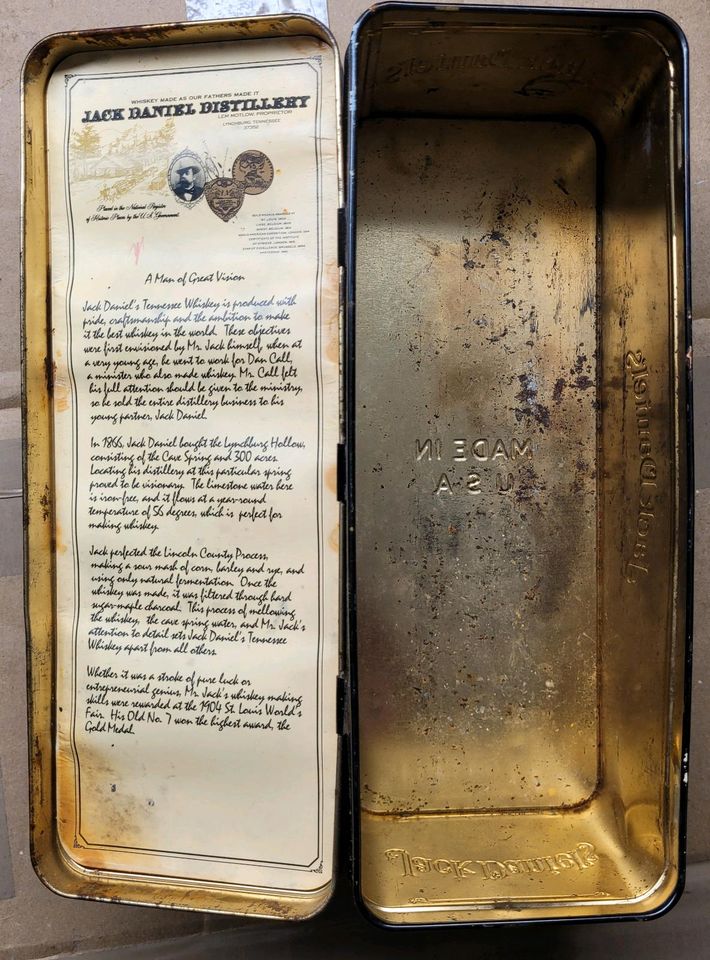 WHISKEY MADE AS OUR FATHERS MADE IT
JACK DANIEL DISTILLERY
LEM MOTLOW, PROPRIETOR
LYNCHBURG, TENNESSEE
37352
Placed in the National Register
of Historic Places by the U.S. Government.
A Man of Great Vision
Jack Daniel's Tennessee Whiskey is produced with
pride, craftsmanship and the ambition to make
it the best whiskey in the world. These objectives
were first envisioned by Mr. Jack himself, when at
a very young age, he went to work for Dan Call,
a minister who also made whiskey. Mr. Call felt
his full attention should be given to the ministry,
so he sold the entire distillery business to his
young partner, Jack Daniel.
In 1866, Jack Daniel bought the Lynchburg Hollow,
consisting of the Cave Spring and 300 acres.
Locating his distillery at this particular spring
proved to be visionary. The limestone water here
is iron-free, and it flows at a year-round
temperature of 56 degrees, which is perfect for
making whiskey.
Jack perfected the Lincoln County Process,
making a sour mash of corn, barley and rye, and
using only natural fermentation. Once the
whiskey was made, it was filtered through hard
sugar-maple charcoal. This process of mellowing
the whiskey, the cave spring water, and Mr. Jack's
attention to detail sets Jack Daniel's Tennessee
Whiskey apart from all others.
Whether it was a stroke of pure luck or
entrepreneurial genius, Mr. Jack's whiskey making
skills were rewarded at the 1904 St. Louis World's
Fair. His Old No. 7 won the highest award, the
Gold Medal.
Jack Daniel's
MADE IN
U S A
Jack Daniel's
Jack Daniel's